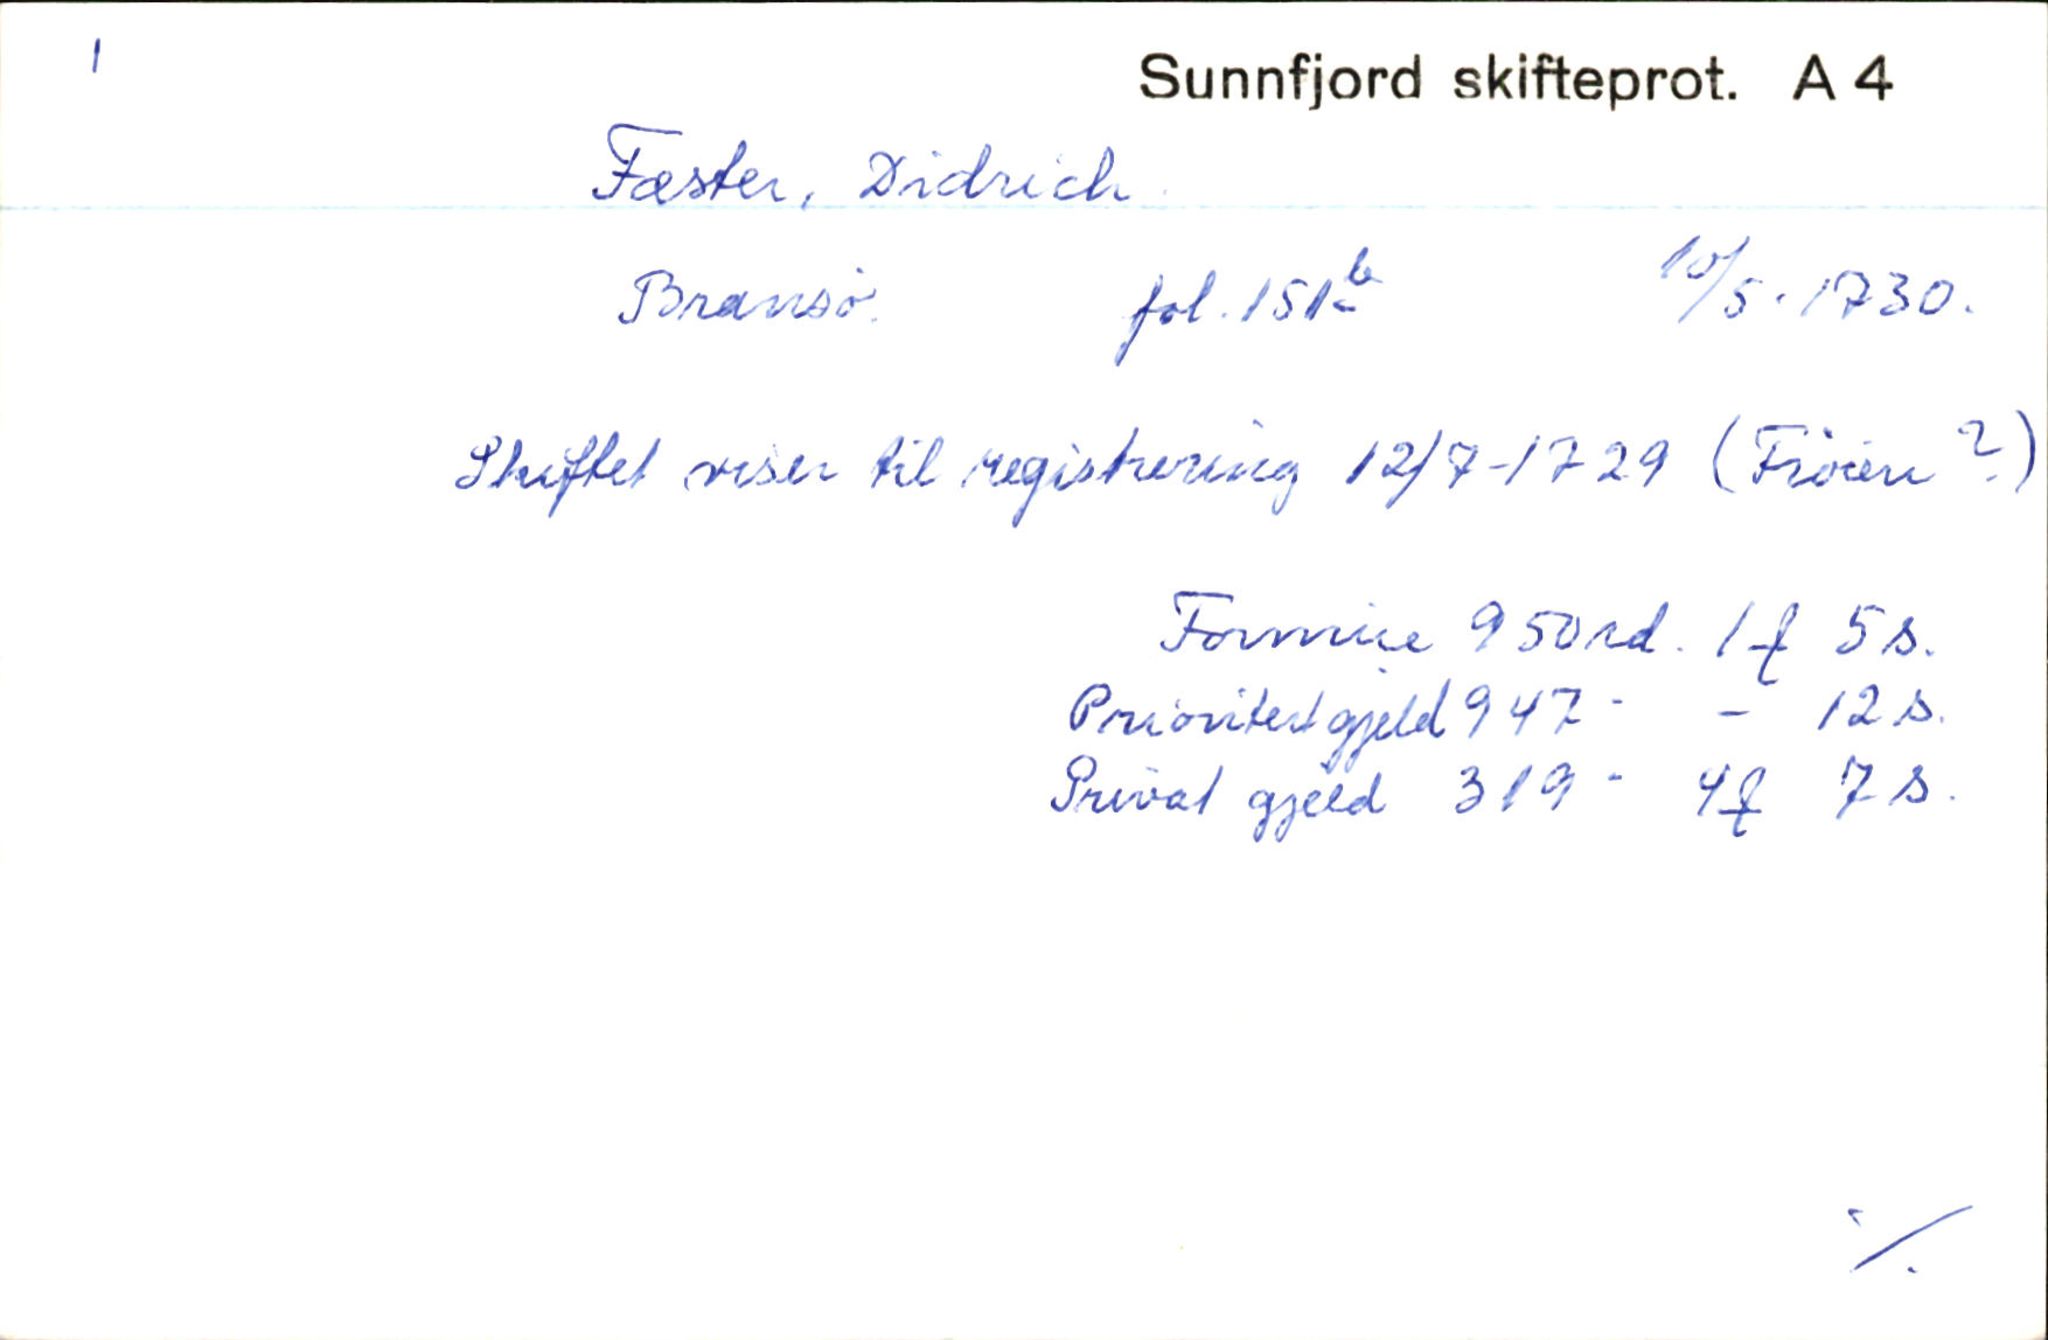 1
Sunnfjord skifteprot. A 4
Fæster, Didrich.
Bransö. fol. 151b 10/5. 1730.
Skiftet viser til registrering 12/7-1729 (Fröien?)
Formue 950 rd. 1 ƒ 5 s.
Prioritetgjeld 947 - - 12 s.
Privat gjeld 319 - 4 ƒ 7 s.
·/.